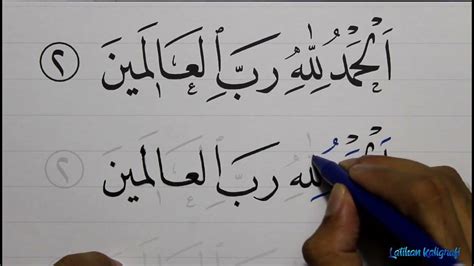 اَلْحَمْدُ لِلّٰهِ رَبِّ الْعَالَمِينَ ٢
اَلْحَمْدُ لِلّٰهِ رَبِّ الْعَالَمِينَ ٢
Latihan Kaligrafi